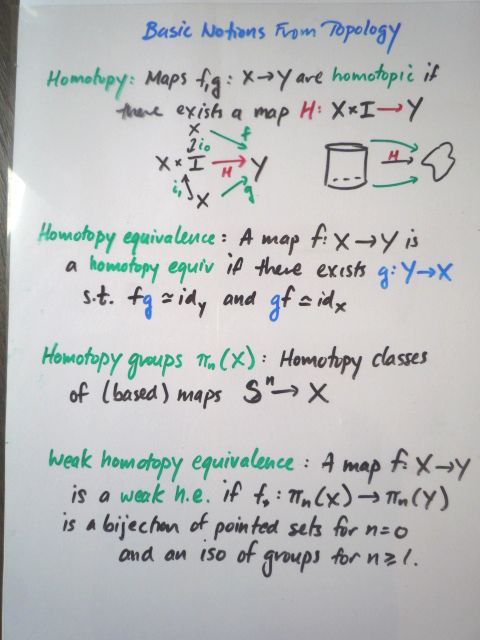 Basic Notions From Topology
Homotopy: Maps f,g: X→Y are homotopic if
there exists a map H: X×I→Y
X f
i₀
X × I H Y H
i₁ X g
Homotopy equivalence: A map f: X→Y is
a homotopy equiv if there exists g: Y→X
s.t. fg ≃ id_Y and gf ≃ id_X
Homotopy groups πₙ(X): Homotopy classes
of (based) maps Sⁿ→ X
Weak homotopy equivalence: A map f: X→Y
is a weak h.e. if f_*: πₙ(X)→πₙ(Y)
is a bijection of pointed sets for n=0
and an iso of groups for n≥1.